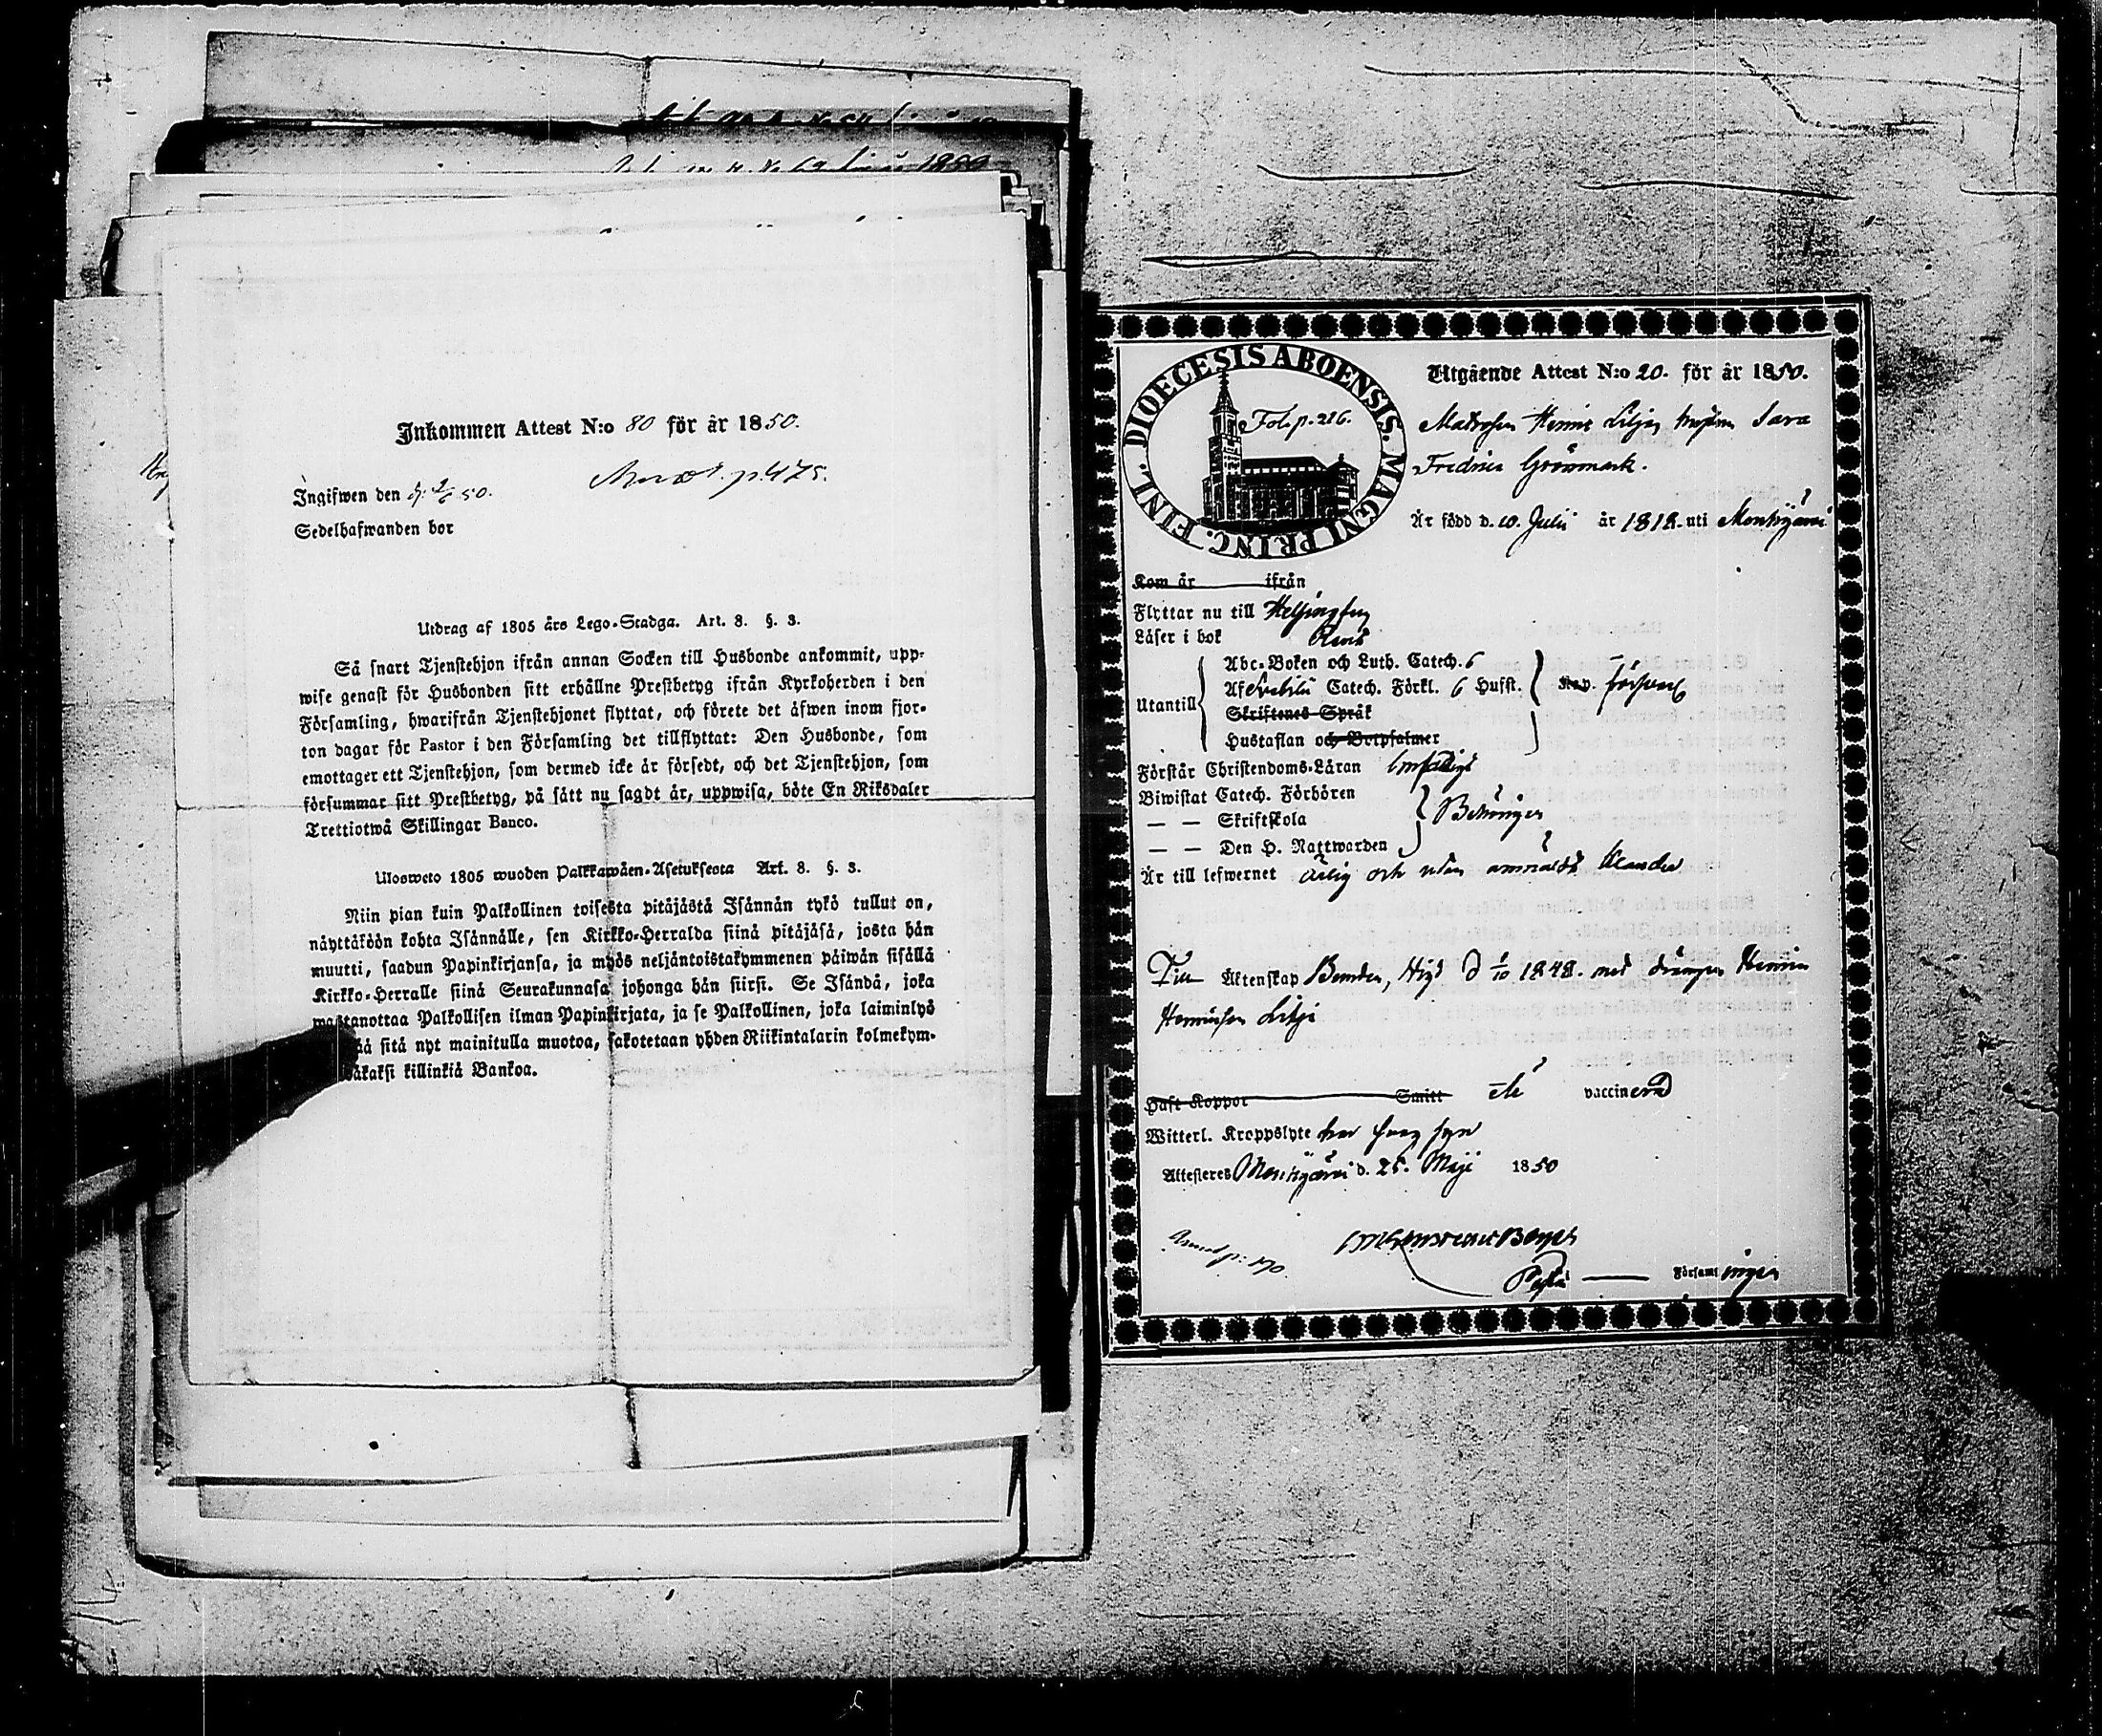 Inkommen Attest N:o 80 för år 1850.
Ingifwen den 50.
p. 475.
Sedelhafwanden bor
Utdrag af 1805 års Lego-Stadga. Art. 8. §. 3.
Så snart Tjenstehjon ifrån annan Socken till Husbonde ankommit, upp-
wise genast för Husbonden sitt erhållne Prestbetyg ifrån Kyrkoherden i den
Församling, hwarifrån Tjenstehjonet flyttat, och förete det äfwen inom fjor-
ton dagar för Pastor i den Församling det tillflyttat: Den Husbonde, som
emottager ett Tjenstehjon, som dermed icke är försedt, och det Tjenstehjon, som
försummar sitt Prestbetyg, på sätt nu sagdt är, uppwisa, böte En Riksdaler
Trettiotwå Skillingar Banco.
Ulosweto 1805 wuoden Palkkawäen-Asetuksesta Art. 8. §. 3.
Niin pian kuin Palkollinen toisesta pitäjästä Isännän tykö tullut on,
näyttäköön kohta Isännälle, sen Kirkko-Herralda siinä pitäjäsä, josta hän
muutti, saadun Papinkirjansa, ja myös neljäntoistakymmenen päiwän sisällä
Kirkko-Herralle siinä Seurakunnasa johonga hän siirsi. Se Isändä, joka
wastanottaa Palkollisen ilman Papinkirjata, ja se Palkollinen, joka laiminlyö
sitä nyt mainitulla muotoa, sakotetaan yhden Riikintalarin kolmekym-
killinkiä Bankoa.
DIOECESIS ABOENSIS. MAGNI PRINC. FINL.
Fol. p. 216.
Utgående Attest N:o 20. för år 1850.
Matrosen Henric Liljas hustru Sara
Fredrica Grönmark.
Är född d. 10. Julii år 1818. uti Mouhijärvi
Kom år ifrån
Flyttar nu till Helsingfors
Läser i bok Rent
Utantill
Abc-Boken och Luth. Catech. 6
Af Svebilii Catech. Förkl. 6 Hufst.
Skriftenes Språk
Hustaflan och Botpsalmer
Förstår Christendoms-Läran
Biwistat Catech. Förhören
— — Skriftskola
— — Den H. Nattwarden
Behörigen
Är till lefwernet ärlig och utan anmäldt klander
Till Äktenskap Bunden, Vigd d 1/10 1848. med drängen Henric
Henricsson Lilja
Haft Koppor Smitt vaccinerad
Witterl. Kroppslyte har svag syn
Attesteres Mouhijärvi d. 25. Maji 1850
p. 190.
Församlingen